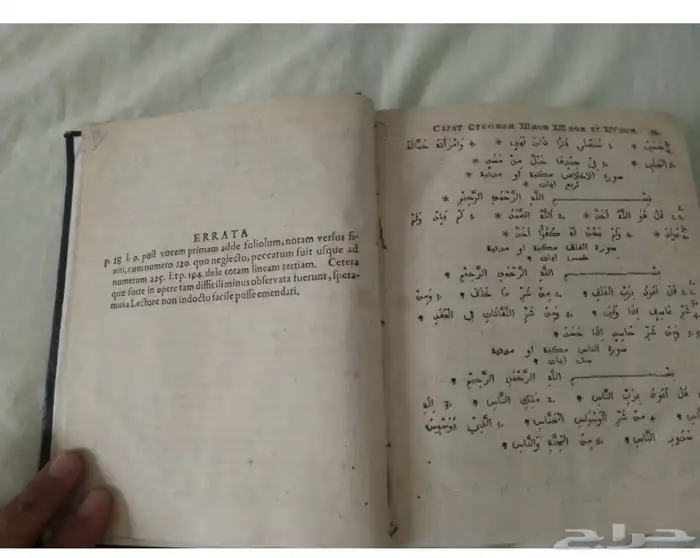 ERRATA
p. 18. l. 9. post vocem primam adde foliolum, notam versus fi-
niti, cum numero 220. quo neglecto, peccatum fuit usque ad
numerum 225. Et p. 194. dele totam lineam tertiam. Cetera
quæ forte in opere tam difficili minus observata fuerunt, spera-
mus a Lectore non indocto facile posse emendari.
CAPUT
سَيَصْلَى نَارًا ذَاتَ لَهَبٍ * 4 وَامْرَأَتُهُ حَمَّالَةَ
الحَطَبِ * 5 فِي جِيدِهَا حَبْلٌ مِنْ مَسَدٍ *
سورة الاخلاص مكية او مدنية
اربع ايات *
بِسْــــــمِ اللَّهِ الرَّحْمَنِ الرَّحِيمِ *
قُلْ هُوَ اللَّهُ أَحَدٌ * 2 اللَّهُ الصَّمَدُ * 3 لَمْ يَلِدْ وَلَمْ
يُولَدْ * 4 وَلَمْ يَكُنْ لَهُ كُفُوًا أَحَدٌ *
سورة الفلق مكية او مدنية
خمس ايات *
بِسْــــــمِ اللَّهِ الرَّحْمَنِ الرَّحِيمِ *
قُلْ أَعُوذُ بِرَبِّ الْفَلَقِ * 2 مِنْ شَرِّ مَا خَلَقَ * 3 وَمِنْ
شَرِّ غَاسِقٍ إِذَا وَقَبَ * 4 وَمِنْ شَرِّ النَّفَّاثَاتِ فِي الْعُقَدِ *
5 وَمِنْ شَرِّ حَاسِدٍ إِذَا حَسَدَ *
سورة الناس مكية او مدنية
ست ايات *
بِسْــــــمِ اللَّهِ الرَّحْمَنِ الرَّحِيمِ *
قُلْ أَعُوذُ بِرَبِّ النَّاسِ * 2 مَلِكِ النَّاسِ * 3 إِلَهِ
النَّاسِ * 4 مِنْ شَرِّ الْوَسْوَاسِ الْخَنَّاسِ * 5 الَّذِي يُوَسْوِسُ
صُدُورِ النَّاسِ * 6 مِنَ الْجِنَّةِ وَالنَّاسِ *
حراج